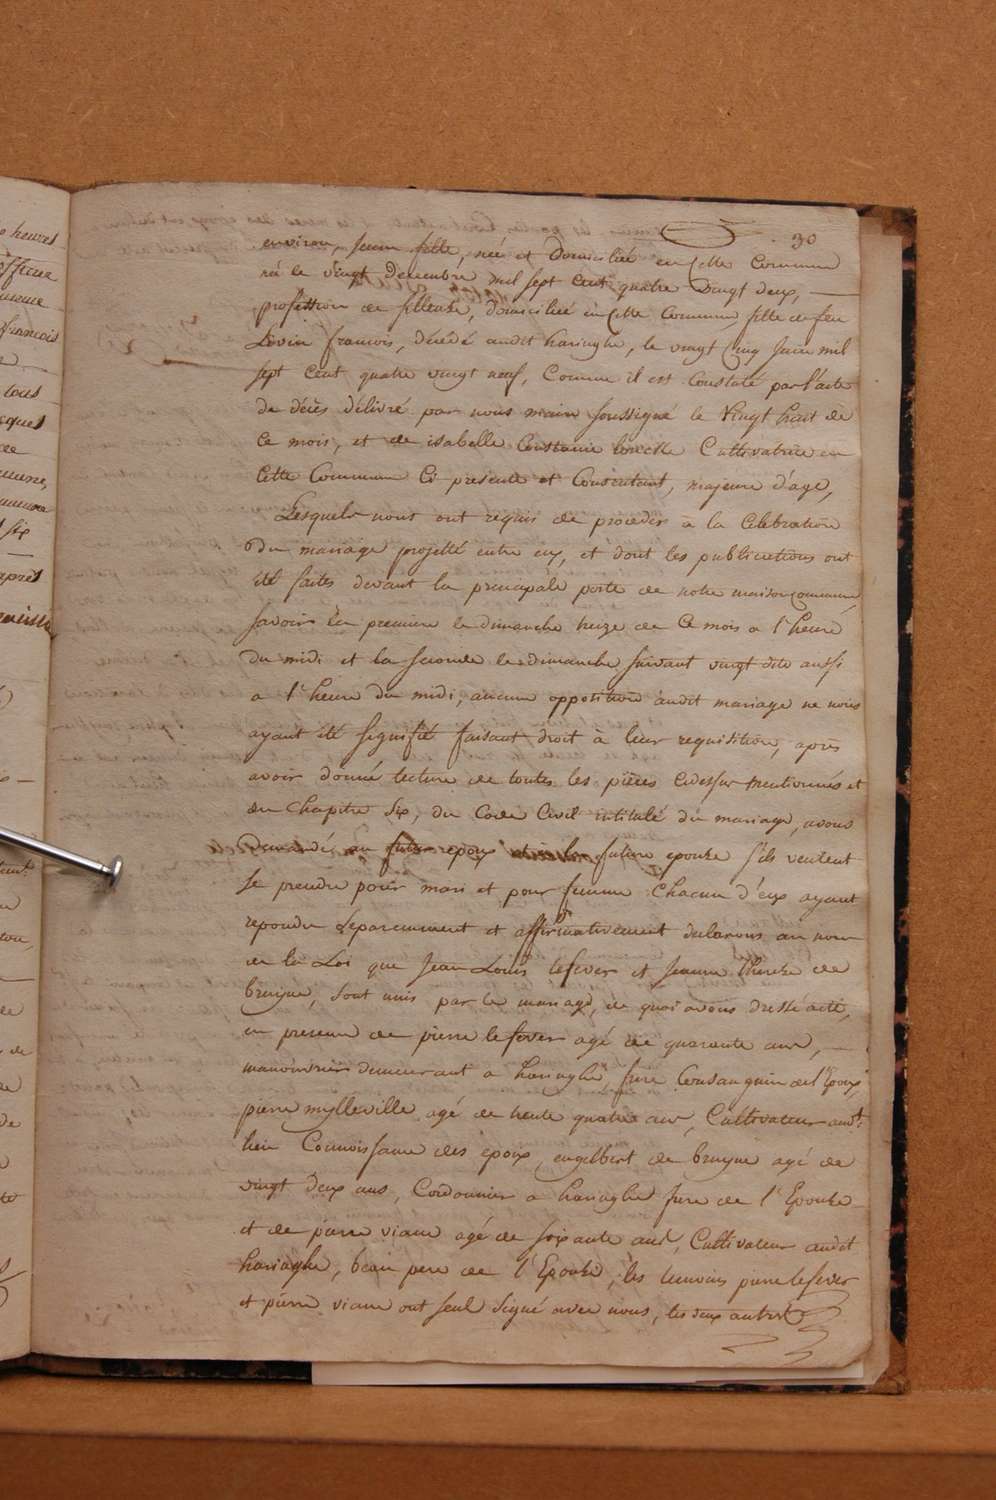 30
environ, jeune fille, née et Domiciliée en Cette Commune
né le vingt decembre mil sept Cent quatre vingt deux,
profession de fileuse, domiciliée en Cette Commune fille de feu
Levin francois, décédé audit haringhe, le vingt Cinq Juin mil
sept Cent quatre vingt neuf, Comme il est Constaté par l'acte
de décès délivré par nous maire soussigné le Vingt huit de
Ce mois, et de isabelle Constance Cultivatrice en
Cette Commune Ci presente et Consentant, majeure d'age,
Lesquels nous ont requis de proceder à la Celebration
du mariage projetté entre eux, et dont les publications ont
été faites devant la principale porte de notre maison commune
savoir la premiere le dimanche treize de Ce mois a l'heure
du midi et la seconde le dimanche suivant vingt dito aussi
a l'heure du midi, aucune opposition audit mariage ne nous
ayant été signifié faisant droit à leur requisition, après
avoir donné lecture de toutes les pièces cidessus mentionnés et
du Chapitre six, du Code Civil intitulé du mariage, avons
Demandé au futur epoux et à la future epouse s'ils veulent
se prendre pour mari et pour femme Chacun d'eux ayant
repondu separement et affirmativement declarons au nom
de la Loi que Jean Louis lefever et Jeanne therese de
bruyne, sont unis par le mariage, de quoi avons dressé acte,
en presence de pierre lefever agé de quarante ans,
manouvrier demeurant a haringhe, frere Consanguin de l'Epoux,
pierre mylleville agé de trente quatre ans, Cultivateur audt.
lieu Connoissance des epoux, engelbert de bruyne agé de
vingt deux ans, Cordonnier a haringhe frere de l'Epouse
et de pierre viane agé de soixante ans, Cultivateur audit
haringhe, beau pere de l'Epouse, les temoins pierre lefever
et pierre viane ont seul signé avec nous, les deux autres